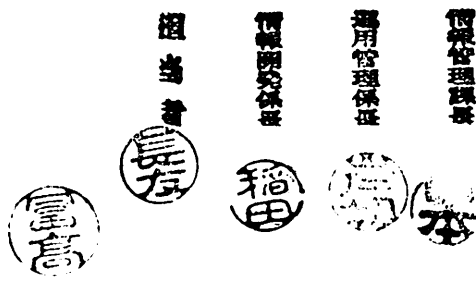 情報管理課長
運用管理係長
情報開発係長
担当者
稲田
長友
富高